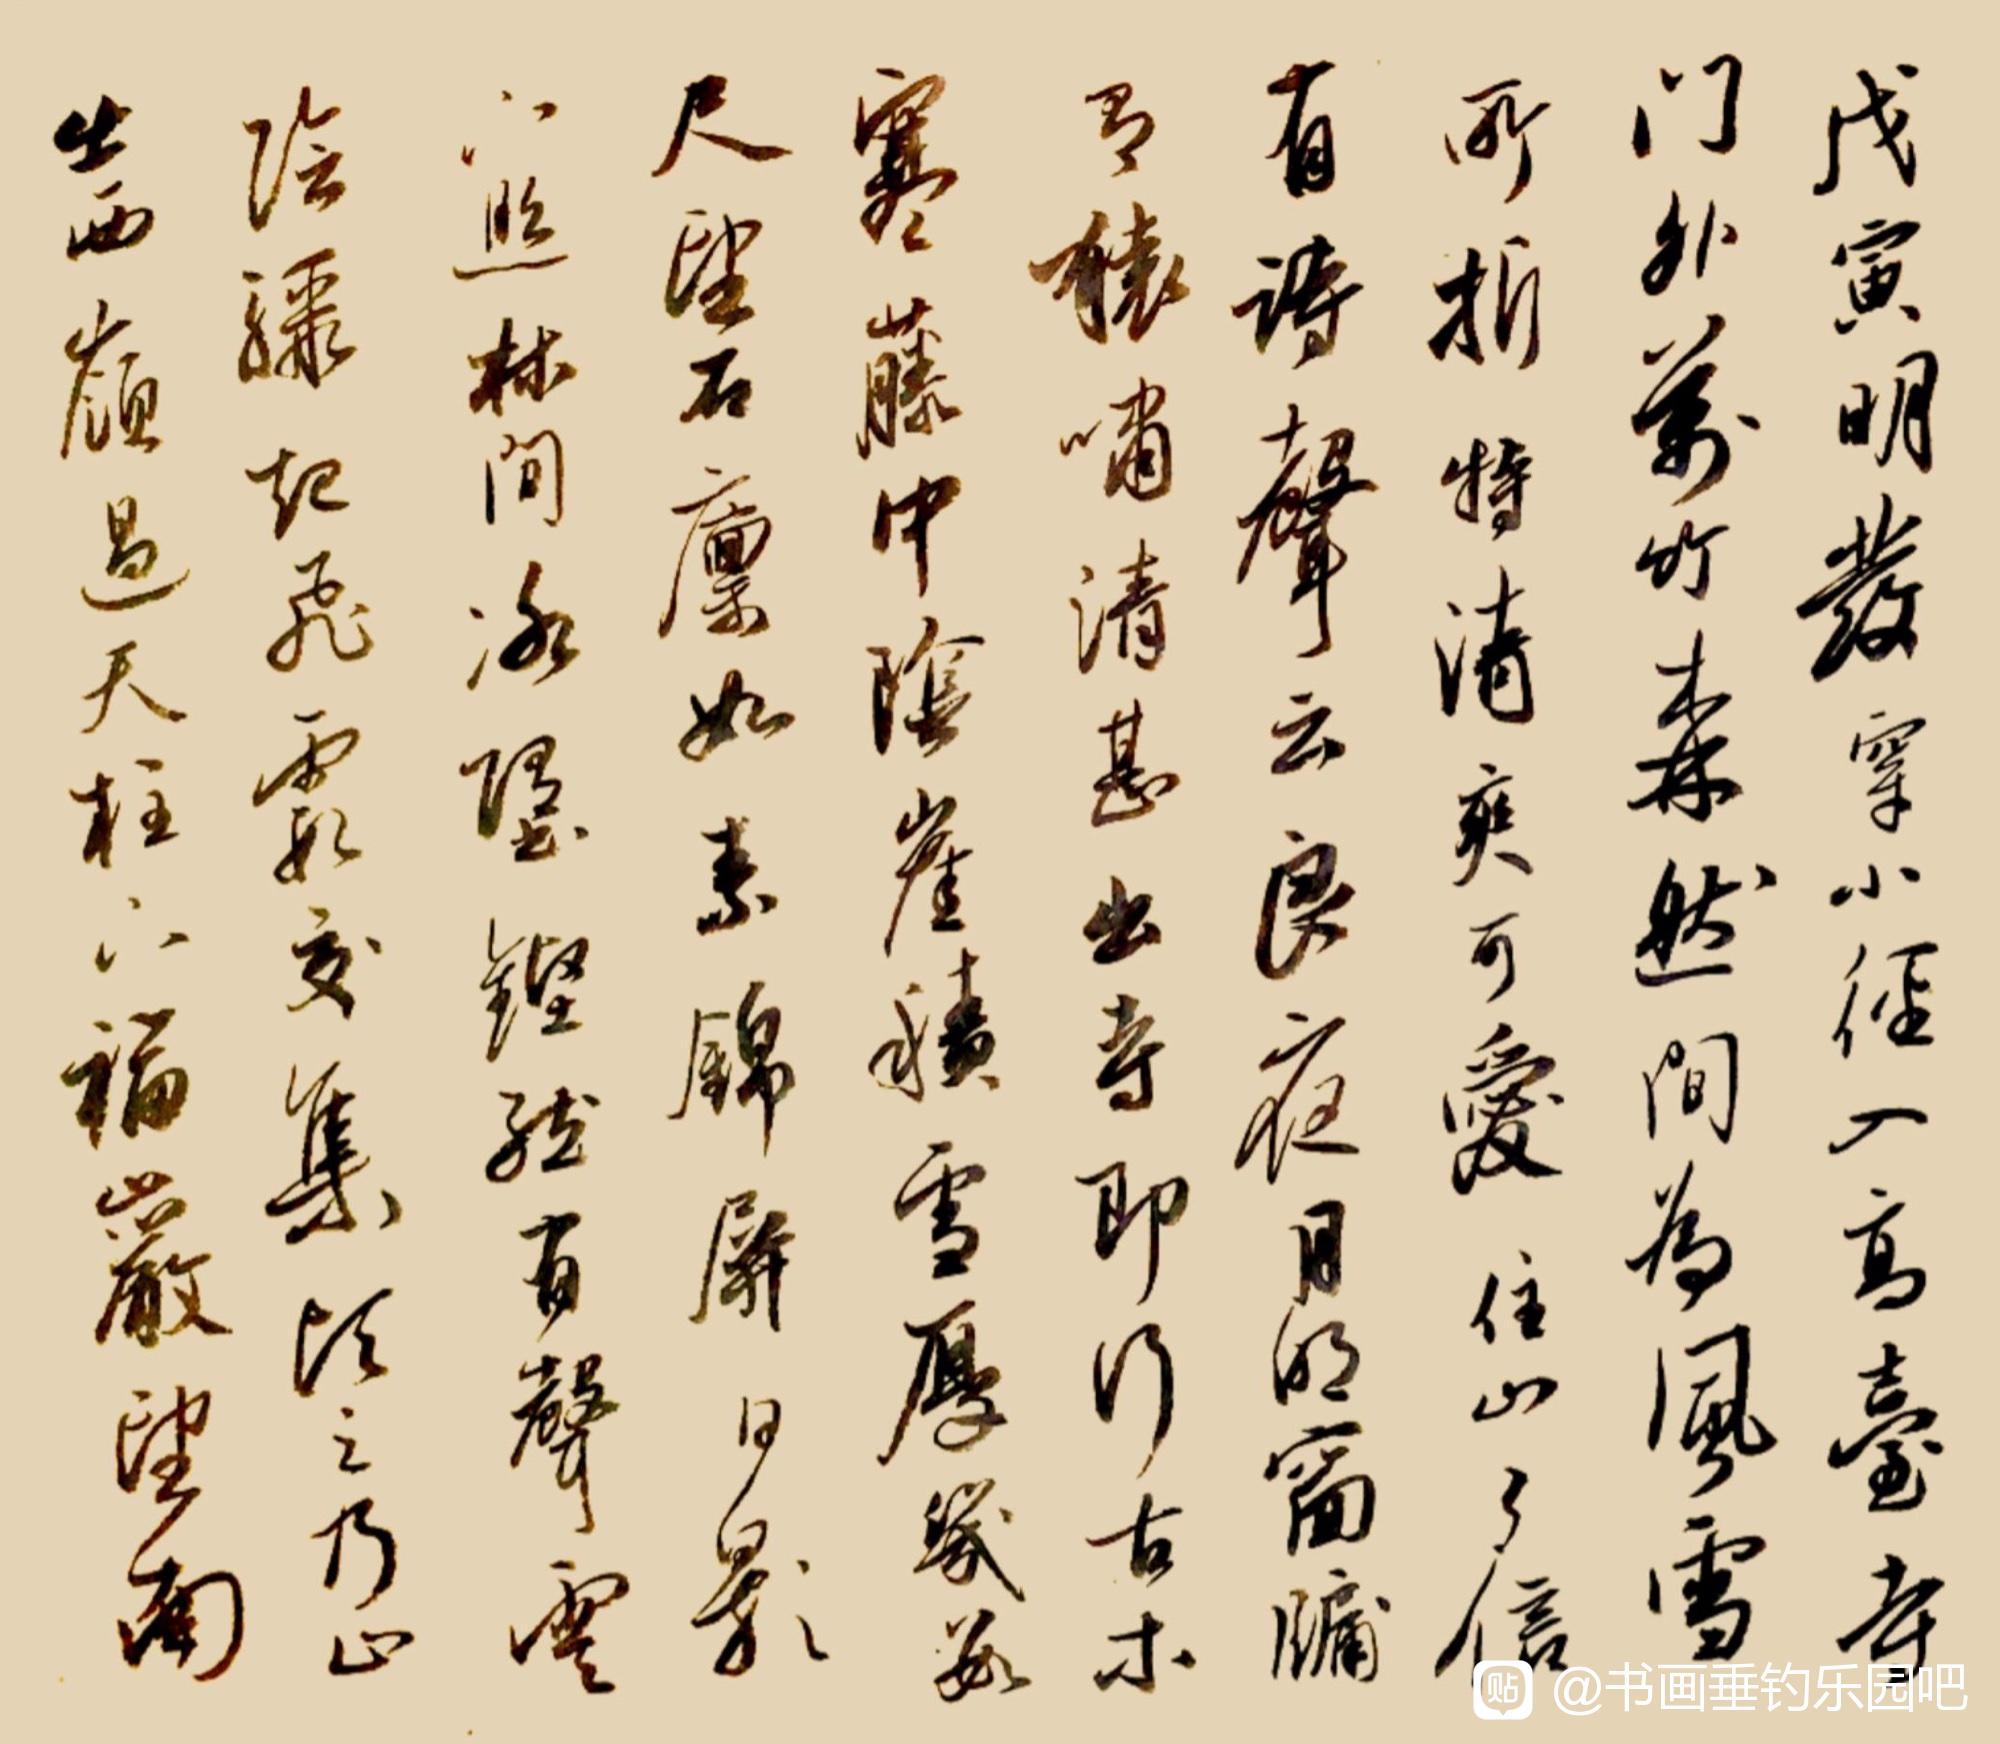 戊寅明發穿小徑入高臺寺
门外萬竹森然間為風雪
所折特清爽可愛住山了信
有詩聲云良夜月明窗牖
有猿嘯清甚出寺即行古木
寒藤中陰崖積雪厚幾數
尺望石廩如素錦屏日影
下照林間冰墮鏗然有聲雲
陰驟起飛霰交集頃之乃止
出西嶺過天柱下福巖望南
@书画垂钓乐园吧